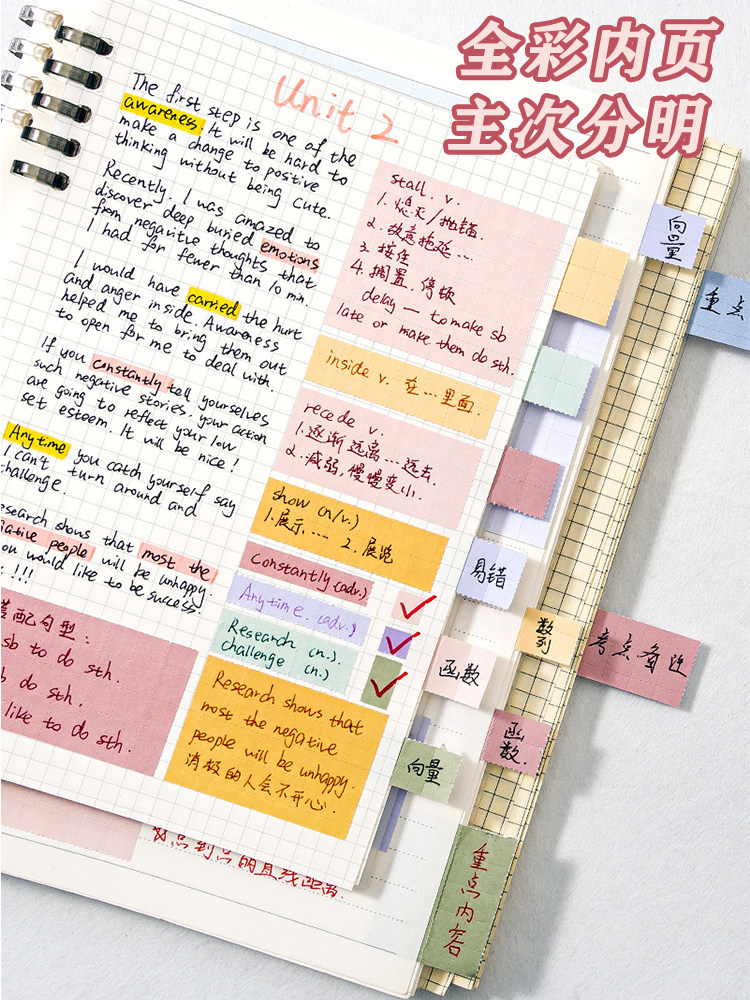 全彩内页
主次分明
Unit 2
The first step is one of the
awareness. It will be hard to
make a change to positive
thinking without being cute.
Recently, I was amazed to
discover deep buried emotions
from negative thoughts that
I had for fewer than 10 min.
I would have carried the hurt
and anger inside. Awareness
helped me to bring them out
to open for me to deal with.
If you constantly tell yourselves
such negative stories. your action
are going to reflect your low
set esteem. It will be nice!
Anytime you catch yourself say
I can't turn around and
challenge.
esearch shows that most the
ative people will be unhappy.
ou would like to be success.
!!!
配句型:
sb to do sth.
b do sth.
like to do sth.
stall. v.
1. 熄灭/抛锚.
2. 故意拖延...
3. 按住
4. 搁置, 停顿
delay — to make sb
late or make them do sth.
inside v. 在...里面.
recede v.
1. 逐渐远离...远去.
2. 减弱, 慢慢变小.
show (n/v.)
1. 展示.... 2. 展览
Constantly (adv.)
Anytime. (adv.)
Research (n.).
challenge (n.)
Research shows that
most the negative
people will be unhappy.
消极的人会不开心.
向量
重点
易错
数列
考点
函数
函数.
向量
重点内容
的直线距离.